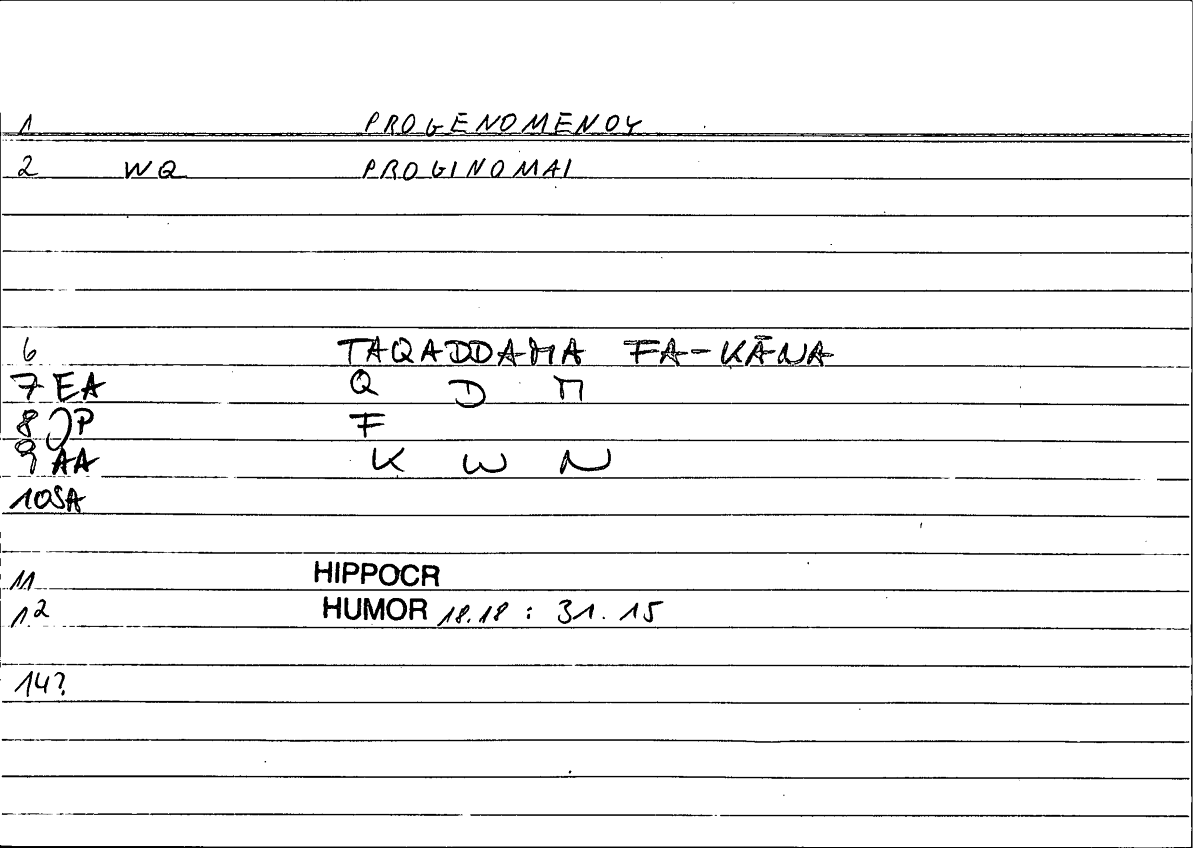 1 PROGENOMENOY
2 WQ PROGINOMAI
6 TAQADDAMA FA-KĀNA
7 EA Q D M
8 JP F
9 AA K W N
10 SA
11 HIPPOCR
12 HUMOR 18.18 : 31.15
14?